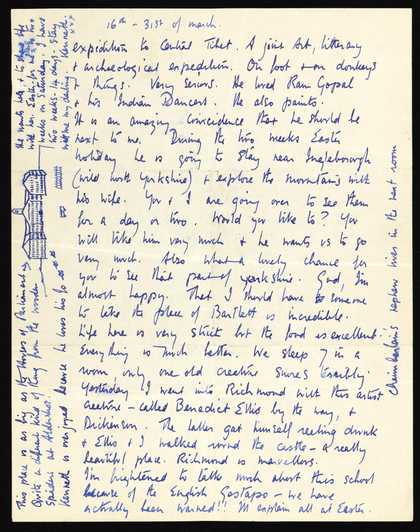 16th - 31st of march.
expidition to Central Tibet. A joint Art, litterary
& archaeological expedition. On foot & on donkeys
& things. Very serious. He loved Ram Gopal
& his Indian Dancers. He also paints.
It is an amazing coincidence that he should be
next to me. During the two weeks Easter
holiday he is going to stay near Ingleborough
(wild North Yorkshire) & explore the mountains with
his wife. You & I are going over to see them
for a day or two. Would you like to? You
will like him very much & he wants us to go
very much. Also what a lovely chance for
you to see that part of yorkshire. God, I'm
almost happy. That I should have someone
to take the place of Bartlett is incredible.
Life here is very strict but the food is excellent.
Everything is much better. We sleep 7 in a
room, only one old creature snores terribly.
Yesterday I went into Richmond with this artist
creature - called Benedict Ellis by the way, &
Dickenson. The latter got himself reeling drunk
& Ellis & I walked round the castle - a really
beautiful place. Richmond is marvellous.
I'm frightened to talk much about this school
because of the English Gestapo - we have
actually been warned!! I'll explain all at Easter.
Chamberlain's nephew lives in the next room
This place is as big as the Houses of Parliament
Quite a different kind of thing from the wooden
Spiders at Aldershot.
Kenneth is overjoyed because he loves his